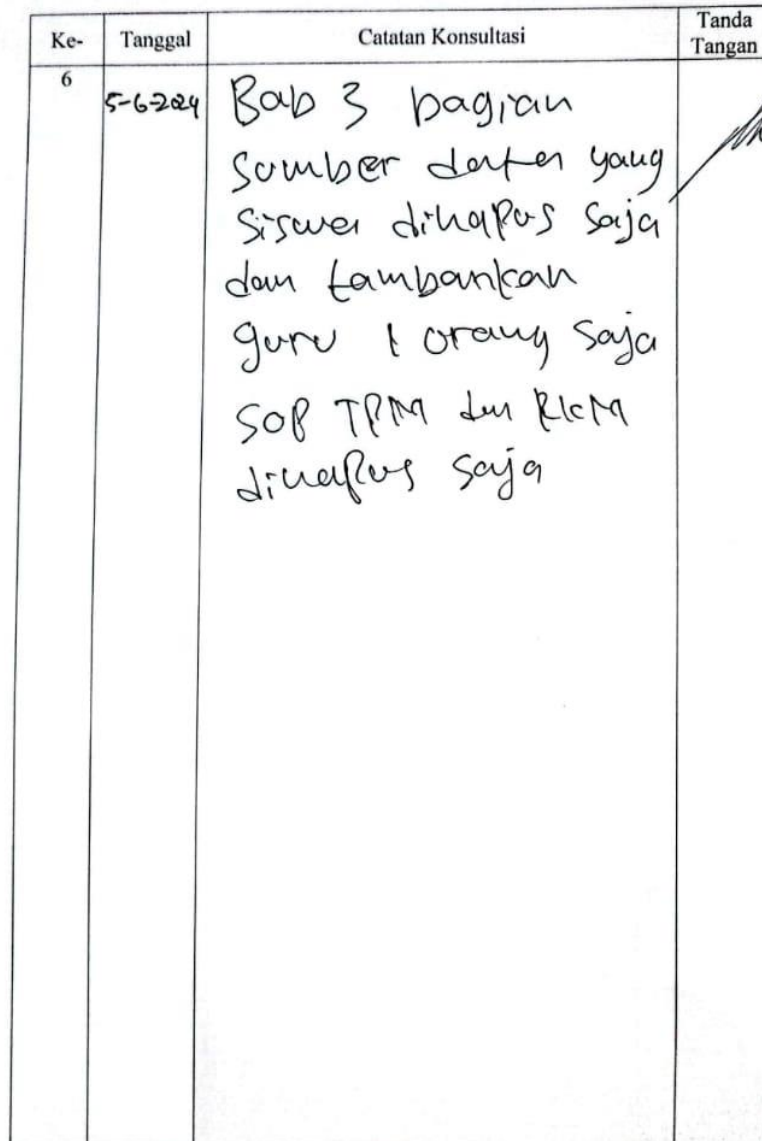 Ke- Tanggal Catatan Konsultasi Tanda Tangan
6 5-6-2024 Bab 3 bagian
Sumber data yang
Siswa dihapus saja
dan tambahkan
guru 1 orang saja
SOP TPM dan RKM
dihapus saja